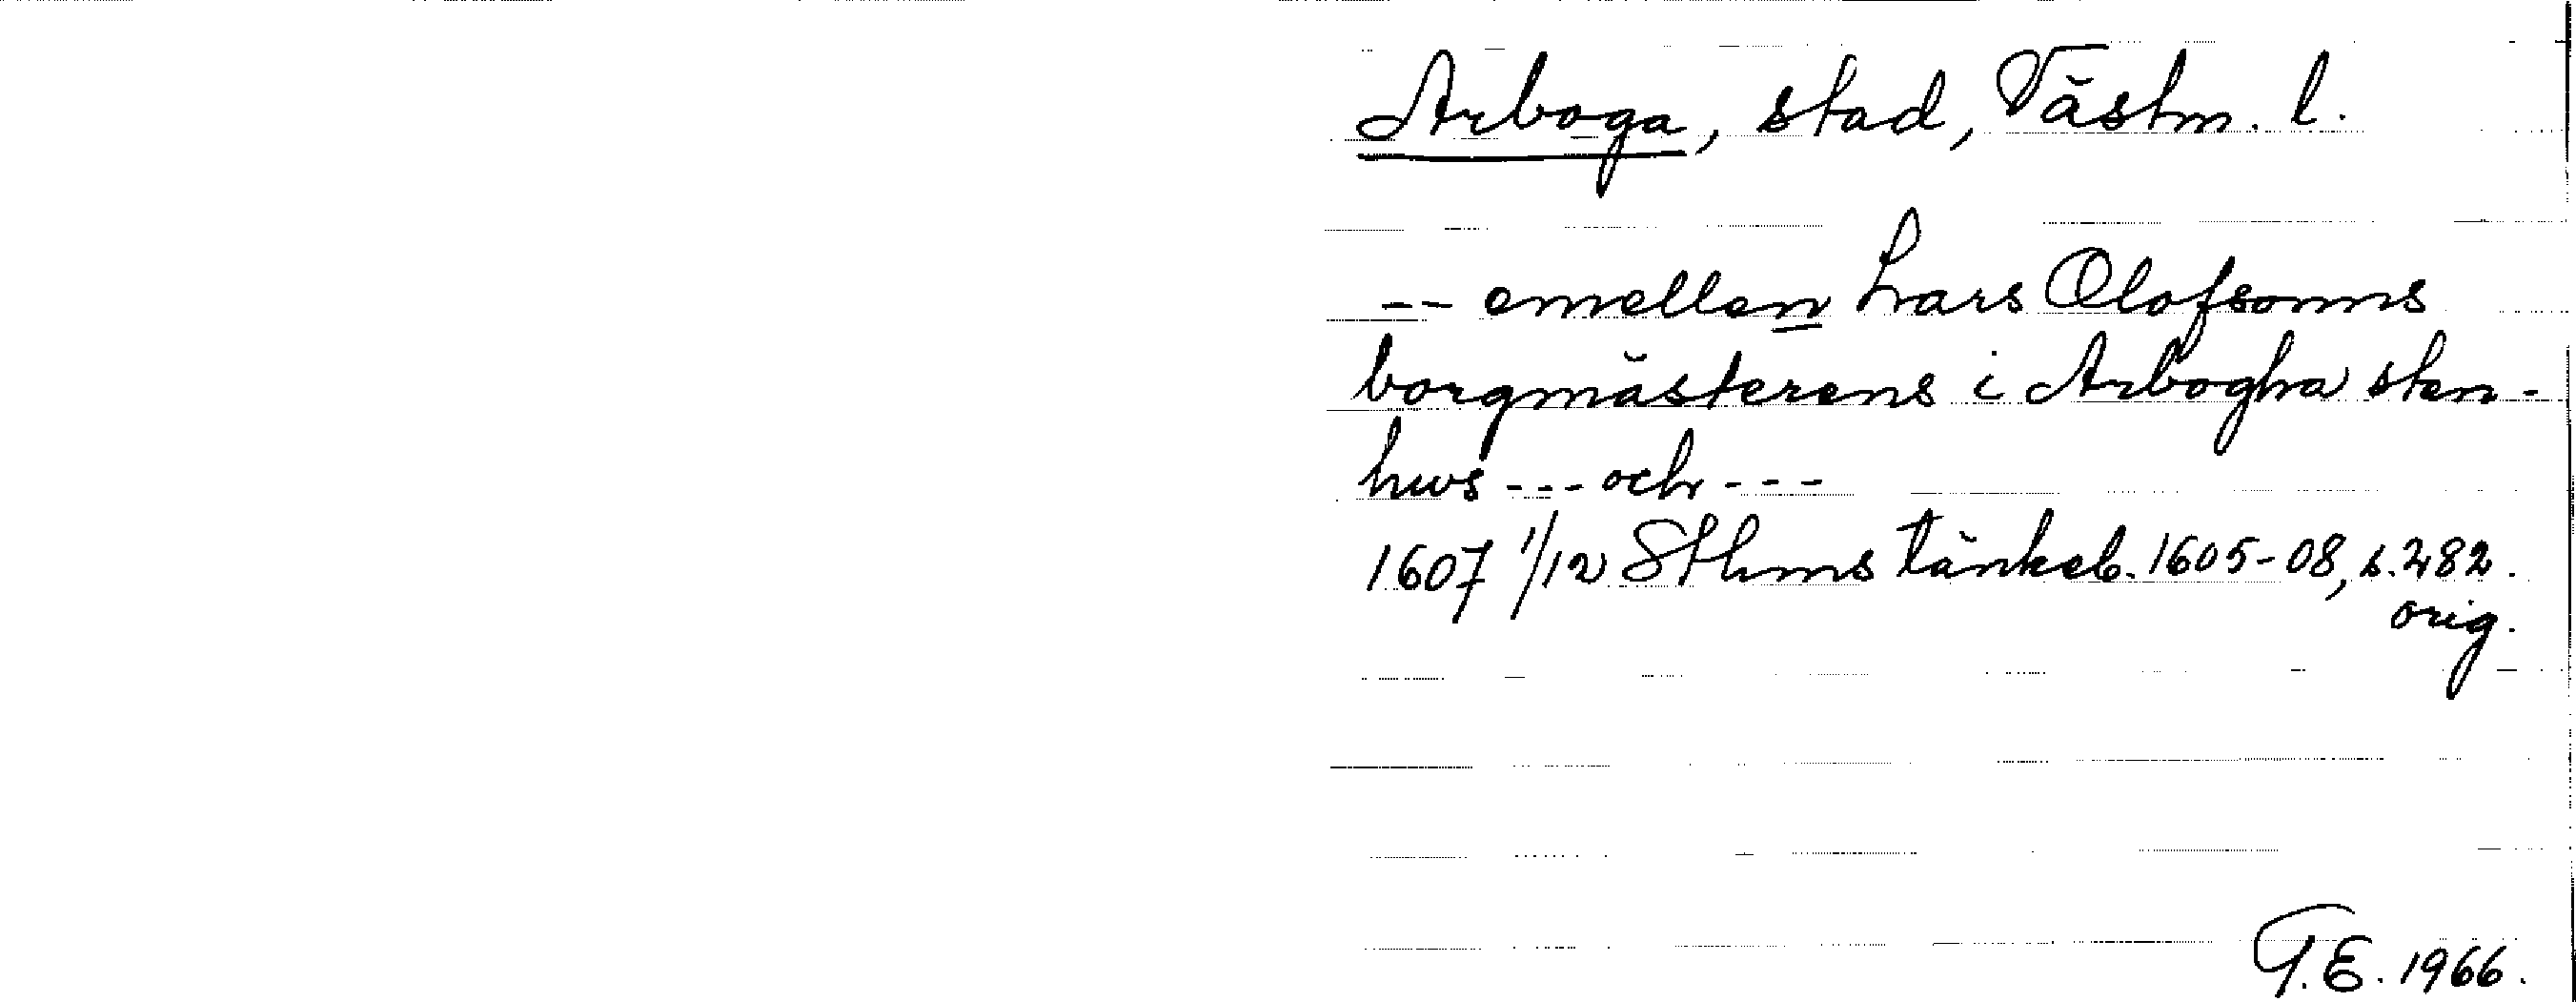 Arboga, stad, Västm. l.
-- emellan Lars Olofsonns
borgmästerens i Arbogha sten-
hws --- och ---
1607 1/12 Sthms tänkeb. 1605-08, s. 282.
orig.
G.E. 1966.